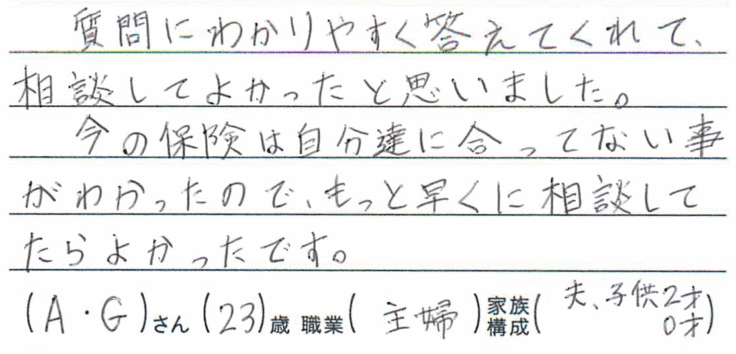 質問にわかりやすく答えてくれて、
相談してよかったと思いました。
今の保険は自分達に合ってない事
がわかったので、もっと早くに相談して
たらよかったです。
(A・G)さん (23)歳 職業(主婦)家族構成(夫、子供2才 0才)